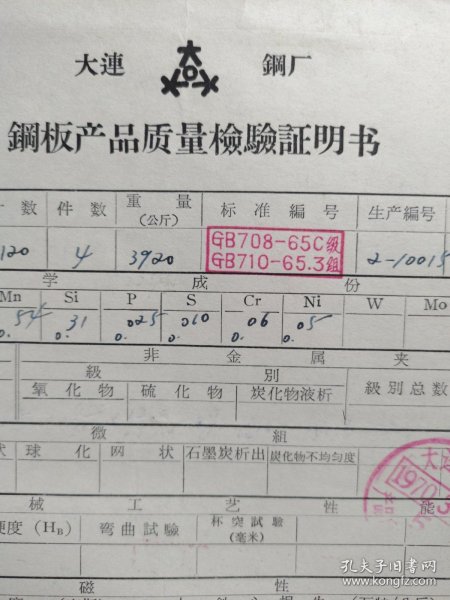 大連 鋼厂
鋼板产品质量檢驗証明书
数 件数 重量 (公斤) 标准編号 生产編号
120 4 3920 GB708-65C级 2-10015
GB710-65.3組
学成份
Mn Si P S Cr Ni W Mo
0.54 0.31 0.025 0.010 0.06 0.05
非金属夹
級別
氧化物 硫化物 炭化物液析 級別总数
微組
状 球化 网状 石墨炭析出 炭化物不均匀度
大連
1970
械工艺性能
硬度(HB) 弯曲試驗 杯突試驗 (毫米)
磁性
孔夫子旧书网